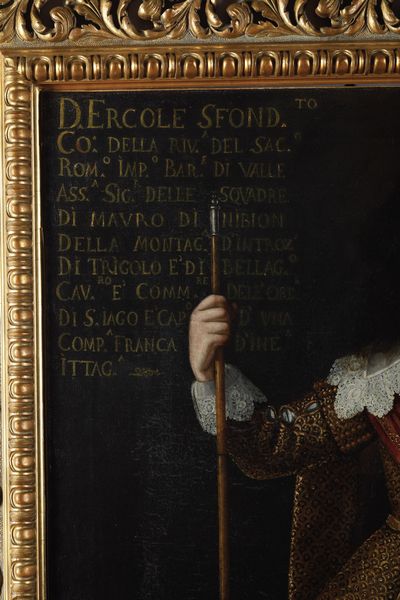 D. ERCOLE SFOND.TO
CO: DELLA RIV.A DEL SAC.O
ROM.O IMP.O BAR.E DI VALLE
ASS.A SIG.R DELLE SQVADRE
DI MAVRO DI NIBION
DELLA MONTAG. D'INTROZ
DI TRIGOLO E' DI BELLAG.O
CAV.RO E' COMM.RE DELL'ORD
DI S. IAGO E' CAP.O D' VNA
COMP.A FRANCA D'INF.
ITTAG.A